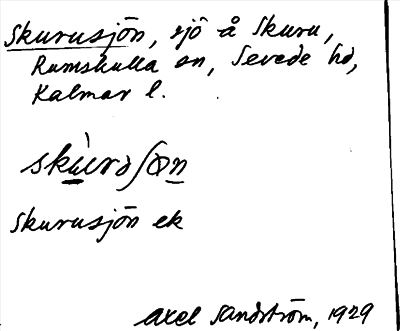 Skurusjön, sjö å Skuru,
Rumskulla sn, Sevede hd,
Kalmar l.
Skurusjön ek
Axel Sandström, 1929